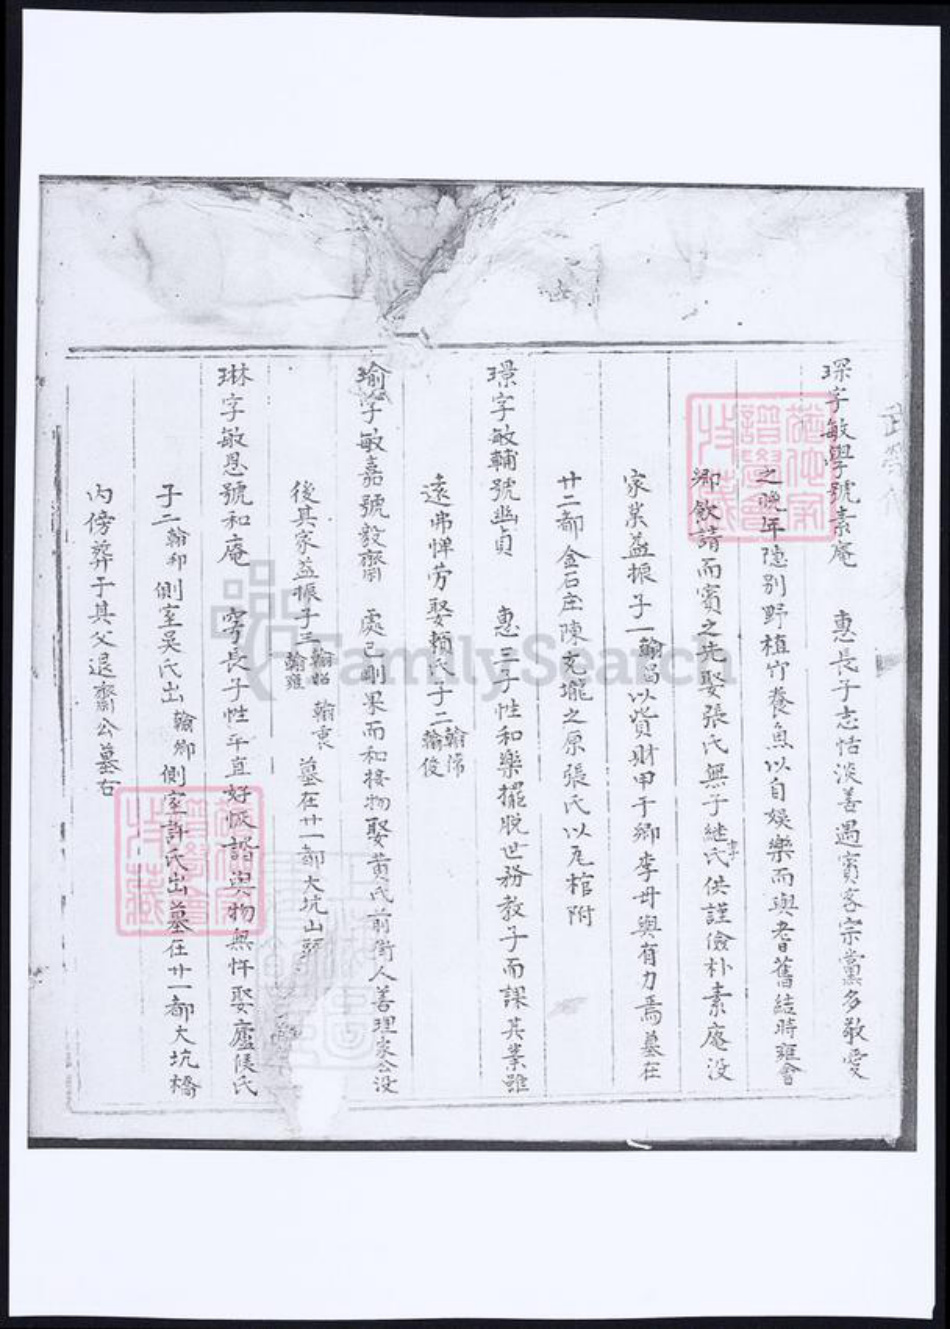 琛字敏學號素庵 惠長子志恬淡善遇賓客宗黨多敬愛
之晚年隱別野植竹養魚以自娛樂而與耆舊結時雍會
鄉飲請而賓之先娶張氏無子継李氏供謹儉朴素庵沒
家業益振子一翰昌以貲財甲于鄉李毋與有力焉墓在
廿二都金石庄陳史壠之原張氏以瓦棺附
璟字敏輔號幽貞 惠三子性和樂擺脫世務教子而課其業雖
遠弗憚勞娶賴氏子二翰儒翰俊
瑜字敏嘉號毅齋 處己剛果而和接物娶黃氏前街人善理家公沒
後其家益振子三翰韶翰雍翰衷 墓在廿一都大坑山頭
琳字敏恩號和庵 寧長子性平直好恢諧與物無忤娶盧侯氏
子二翰邦側室吳氏出翰卿側室許氏出墓在廿一都大坑橋
內傍葬于其父退齋公墓右
FamilySearch